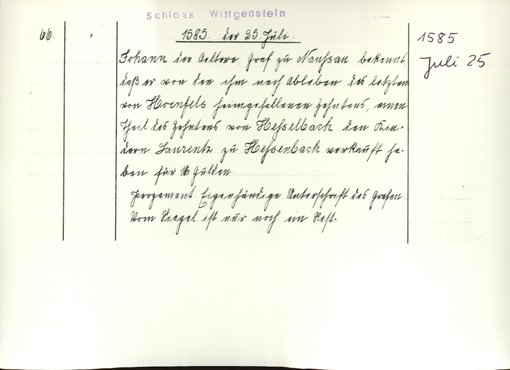 Schloss Wittgenstein
66.
1585. der 25. Juli
1585
Juli 25
Johann der Aeltere Graf zu Nauhsau bekennt
daß er von den ihm nach Ableben des letzten
von Hoenfels heimgefallenen Zehntens, einen
Theil des Zehntens von Hesselbach den Kin-
dern Laurentz zu Hessenbach verkauft ha-
ben für 16 Gulden
Pergament Eigenhändige Unterschrift des Grafen
Vom Siegel ist nur noch ein Rest.